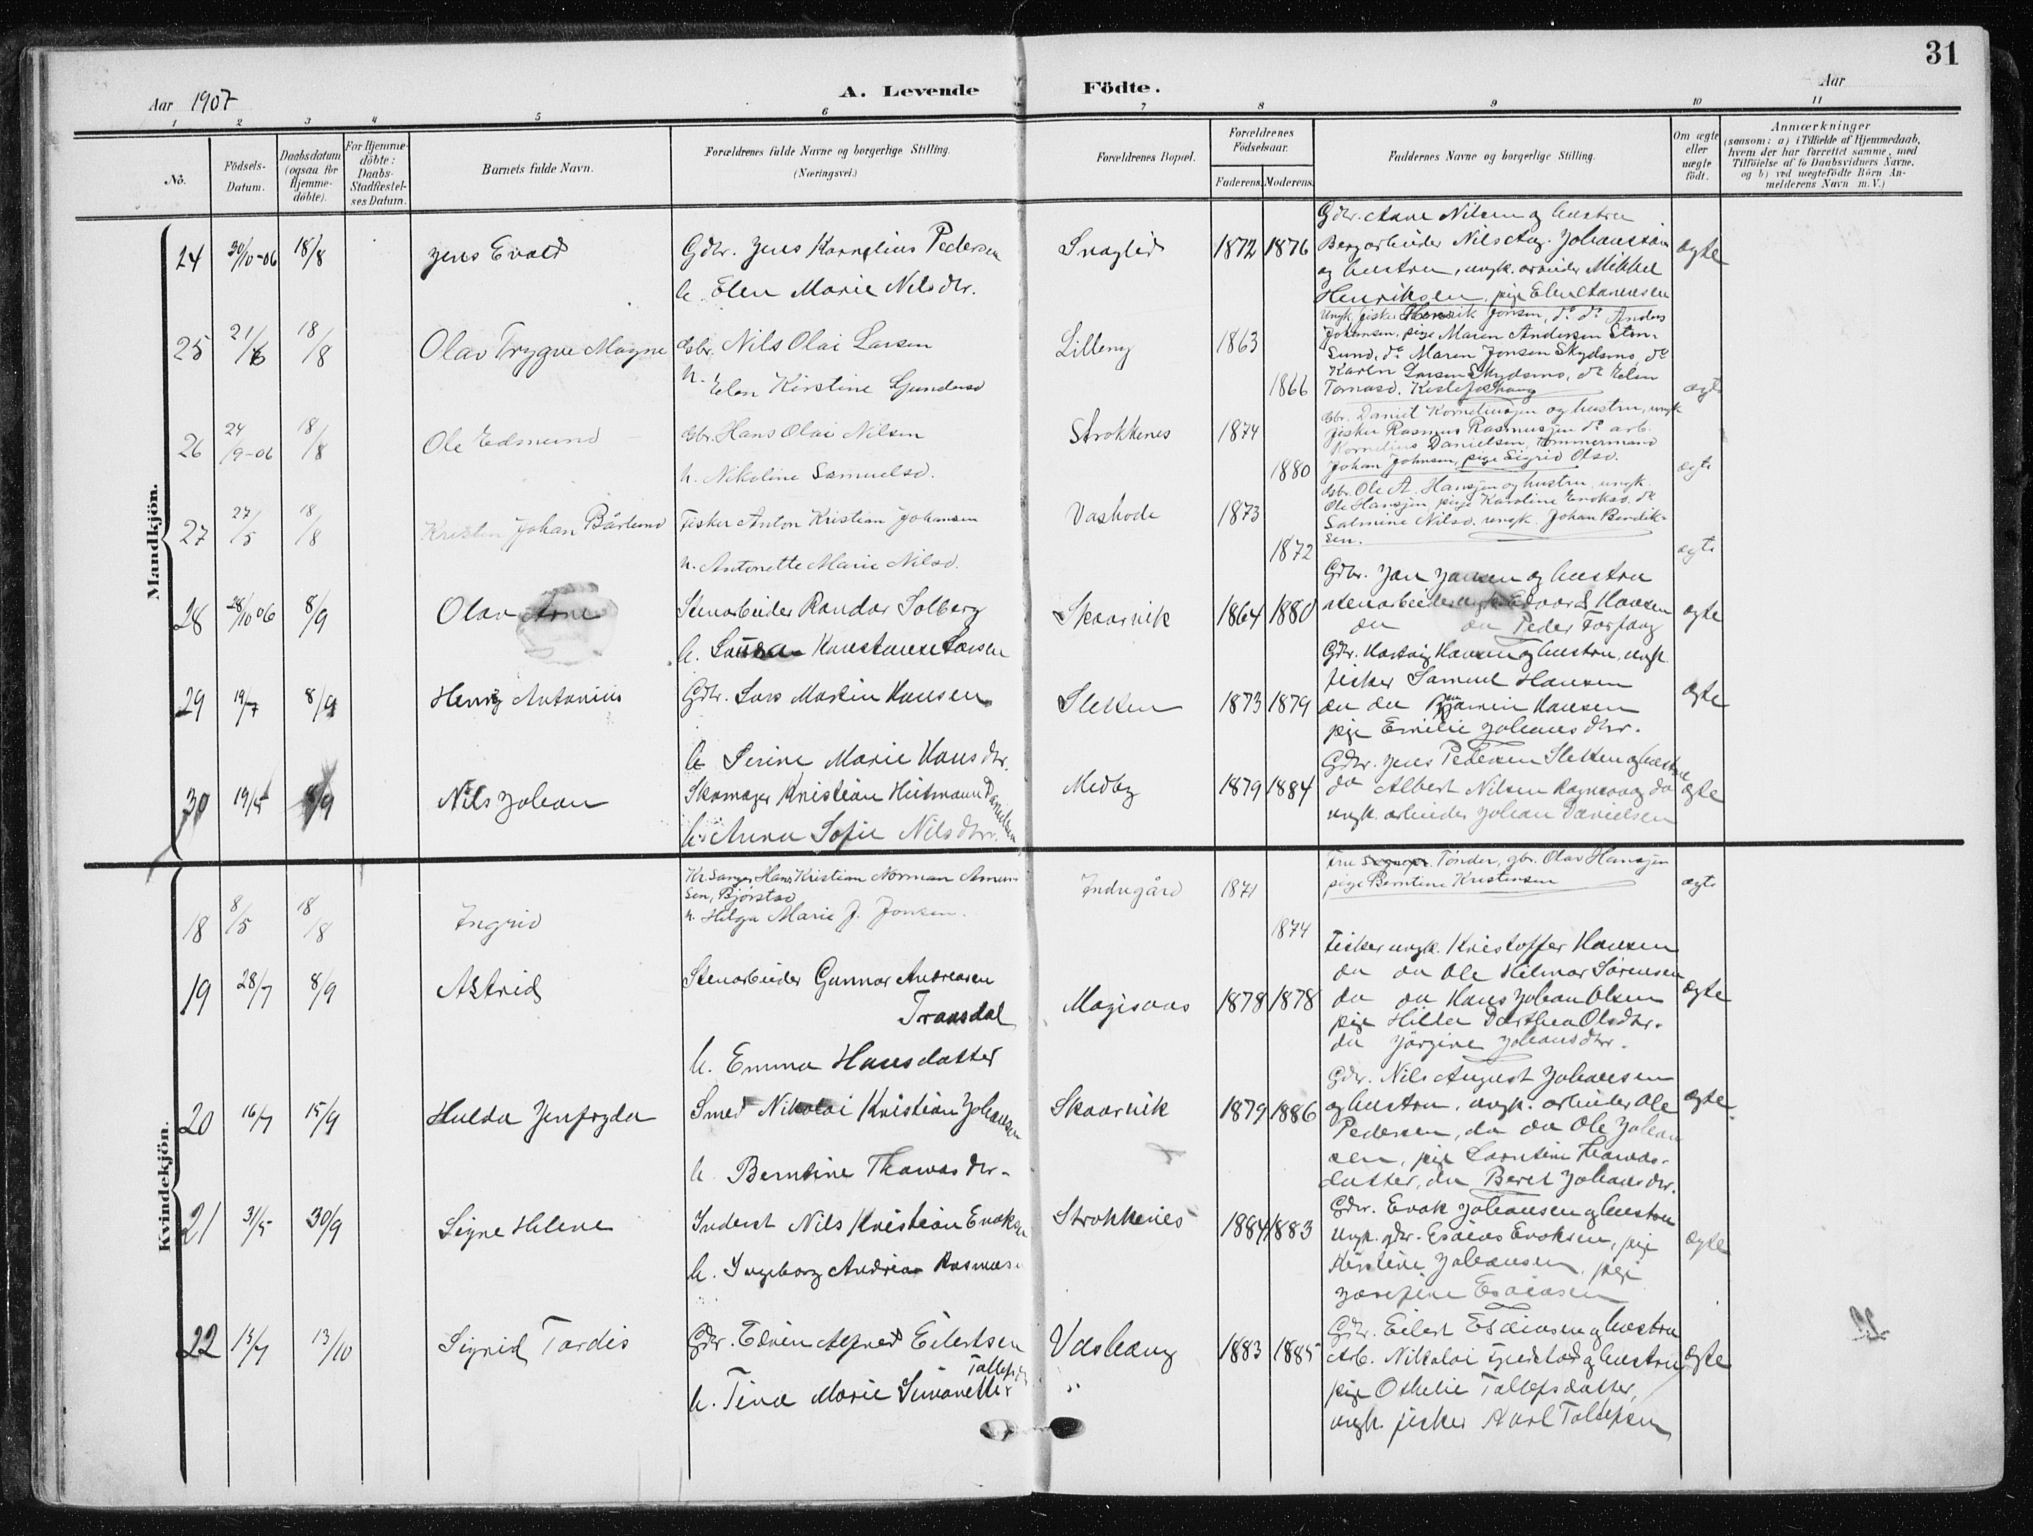 31
Aar 1907
A. Levende Födte.
Aar
1 2 3 4 5 6 7 8 9 10 11
No.
Födsels-Datum.
Daabsdatum (ogsaa for Hjemme-döbte).
For Hjemme-döbte: Daabs-Stadfæstel-ses Datum.
Barnets fulde Navn.
Forældrenes fulde Navne og borgerlige Stilling.
(Næringsvei.)
Forældrenes Bopæl.
Forældrenes Födselsaar.
Faderens. Moderens.
Faddernes Navne og borgerlige Stilling.
Om ægte eller uægte födt.
Anmærkninger
(saasom: a) i Tilfælde af Hjemmedaab,
hvem der har forrettet samme, med
Tilföielse af to Daabsvidners Navne,
og b) ved uægtefödte Börn An-
melderens Navn m. V.)
Mandkjön.
24 30/10-06 18/8 Jens Evald
Gdbr. Jens Kornelius Pedersen
h. Elen Marie Nilsdtr.
1872 1876
Gdbr. Aane Nilsen og hustru
Bergarbeider Nils Aug. Johansen
og hustru, ungk. arbeider Mikkel
Henriksen, pige Elen
ægte
25 21/6 18/8 Olav Trygve Magne
Gbr. Nils Olai Larsen
h. Elen Kirstine
Lilleng
1863
1866
Ungk. fisker Henrik Jonsen, do do Anders
Johansen, pige Maren Andersen Sten-
sund, do Maren Jonsen Skydsmo, do
Karen Larsen Skydsmo, do Elen
ægte
26 24/9-06 18/8 Ole Edmund
Gbr. Hans Olai Nilsen
h. Nikoline Samuelsd.
Strokkenes
1874
1880
Gbr. Daniel Korneliussen og hustru, ungk
fisker Rasmus Rasmussen do arb.
Kornelius Danielsen, Tømmermand
Johan Johnsen, pige Sigrid Olsd.
ægte
27 27/5 18/8 Kristen Johan Bårlund
Fisker Anton Kristian Johansen
h. Antonette Marie Nilsd.
1873
1872
Gbr. Ole A. Hansen og hustru, ungk.
Ole Hansen, pige Karoline Enoksd. do
Salmine Nilsd. ungk. Johan Bendik-
sen.
ægte
28 28/10 06 8/9 Olav Arne
Stenarbeider Randor Solberg
h. Laura Konstanse Larsen
Skaarvik
1864 1880
Gdbr. Jon Jonsen og hustru
stenarbeider ungk. Edvard Hansen
do do Peder
ægte
29 19/7 8/9 Henrij Antonius
Gdbr. Lars Martin Hansen
h. Serine Marie Hansdtr.
Sletten
1873 1879
Gdbr. Hartvig Hansen og hustru, ungk.
fisker Samuel Hansen
do do Hansen
pige Emilie Johansdtr.
ægte
30 19/5 8/9 Nils Johan
Skomager Kristian Heitmann Danielsen
h. Anna Sofie Nilsdtr.
Medby
1879 1884
Gdbr. Jens Pedersen Sletten og hustru
do Albert Nilsen do
ungk. arbeider Johan Danielsen
ægte
Kvindekjön.
18 8/5 18/8 Ingrid
Kr. Sanger Hans Kristian Norman Amun-
sen, Bjørstad
h. Helga Marie J. Jonsen.
Indregård
1871
1874
Fru Tønder, gbr. Olav Hansen
pige Berntine Kristensen
ægte
19 28/7 8/9 Astrid
Stenarbeider Gunnar Andreasen
Traasdal
h. Emma Hansdatter
Magisaas
1878 1878
Fisker ungk. Kristoffer Hansen
do do Ole Hilmar Sørensen
do do Hans Johan Olsen
pige Hilda Dorthea Olsdtr.
do Jørgine Johansdtr.
ægte
20 16/7 15/9 Hulda Jenfryda
Smed Nikolai Kristian Johansen
h. Berntine Thomasdtr.
Skaarvik
1879 1886
Gdbr. Nils August Johansen
og hustru, ungk. arbeider Ole
Pedersen, do do Ole Johan
sen, pige Thomas-
datter, do Beret Johansdtr.
ægte.
21 31/5 30/9 Signe Helene
Inderst Nils Kristian Enoksen
h. Ingeborg Andrea Rasmus
Strokkenes
1884 1883
Gdbr. Enok Johansen og hustru
ungk. gdbr. Esaias Enoksen, pige
Kirstine Johansen, pige
Josefine Esaiasen
ægte
22 15/7 13/10 Sigrid Tordis
Gdbr. Edvin Alfred Eilertsen
h. Tina Marie Simonette Tollefsdtr
Vashaug
1883 1885
Gdbr. Eilert Esaiasen og hustru
Arb. Nikolai og hustru
pige Othelie Tollefsdatter,
ungk. fisker Karl Tollefsen
ægte